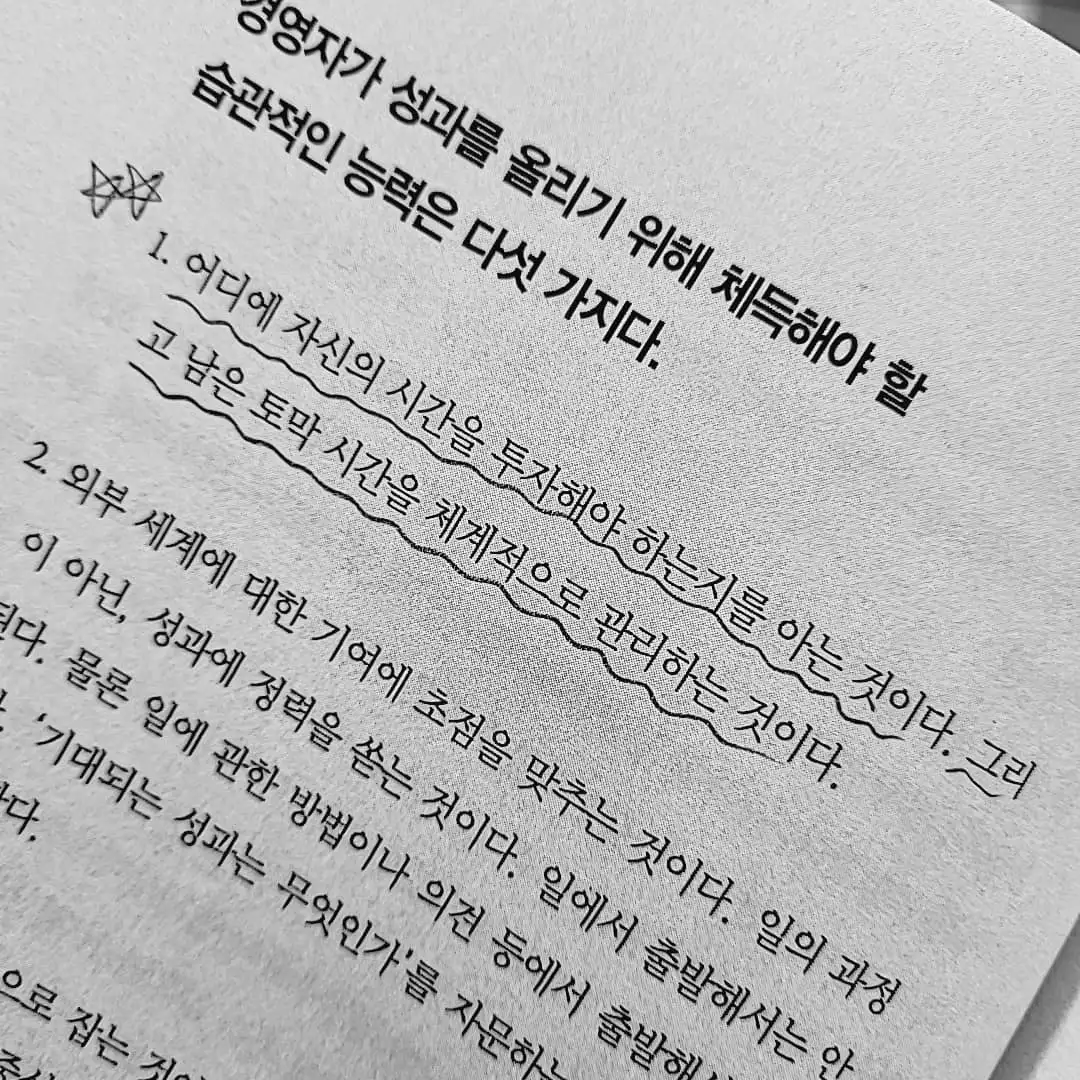 경영자가 성과를 올리기 위해 체득해야 할
습관적인 능력은 다섯 가지다.
1. 어디에 자신의 시간을 투자해야 하는지를 아는 것이다. 그리
고 남은 토막 시간을 체계적으로 관리하는 것이다.
2. 외부 세계에 대한 기여에 초점을 맞추는 것이다. 일의 과정
이 아닌, 성과에 정력을 쏟는 것이다. 일에서 출발해서는 안
된다. 물론 일에 관한 방법이나 의견 등에서 출발해서
'기대되는 성과는 무엇인가'를 자문하는
으로 잡는